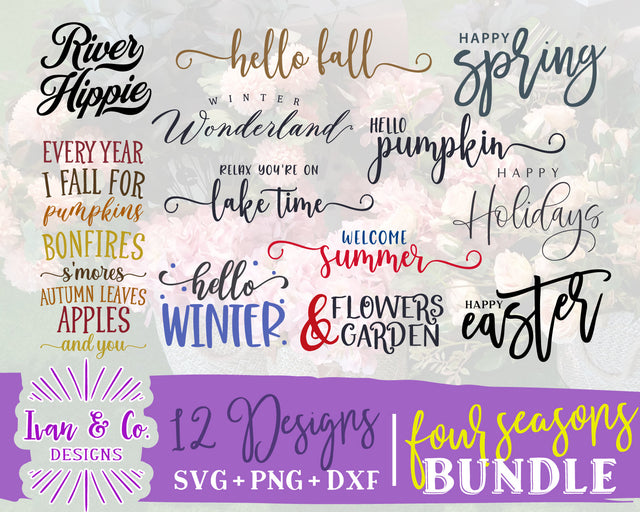 River
Hippie
hello fall
HAPPY
spring
WINTER
Wonderland
HELLO
pumpkin
EVERY YEAR
I FALL FOR
pumpkins
BONFIRES
s'mores
AUTUMN LEAVES
APPLES
and you
RELAX YOU'RE ON
lake time
HAPPY
Holidays
WELCOME
summer
hello
WINTER
FLOWERS
& GARDEN
HAPPY
easter
Ivan & Co.
DESIGNS
12 Designs
SVG + PNG + DXF
four seasons
BUNDLE